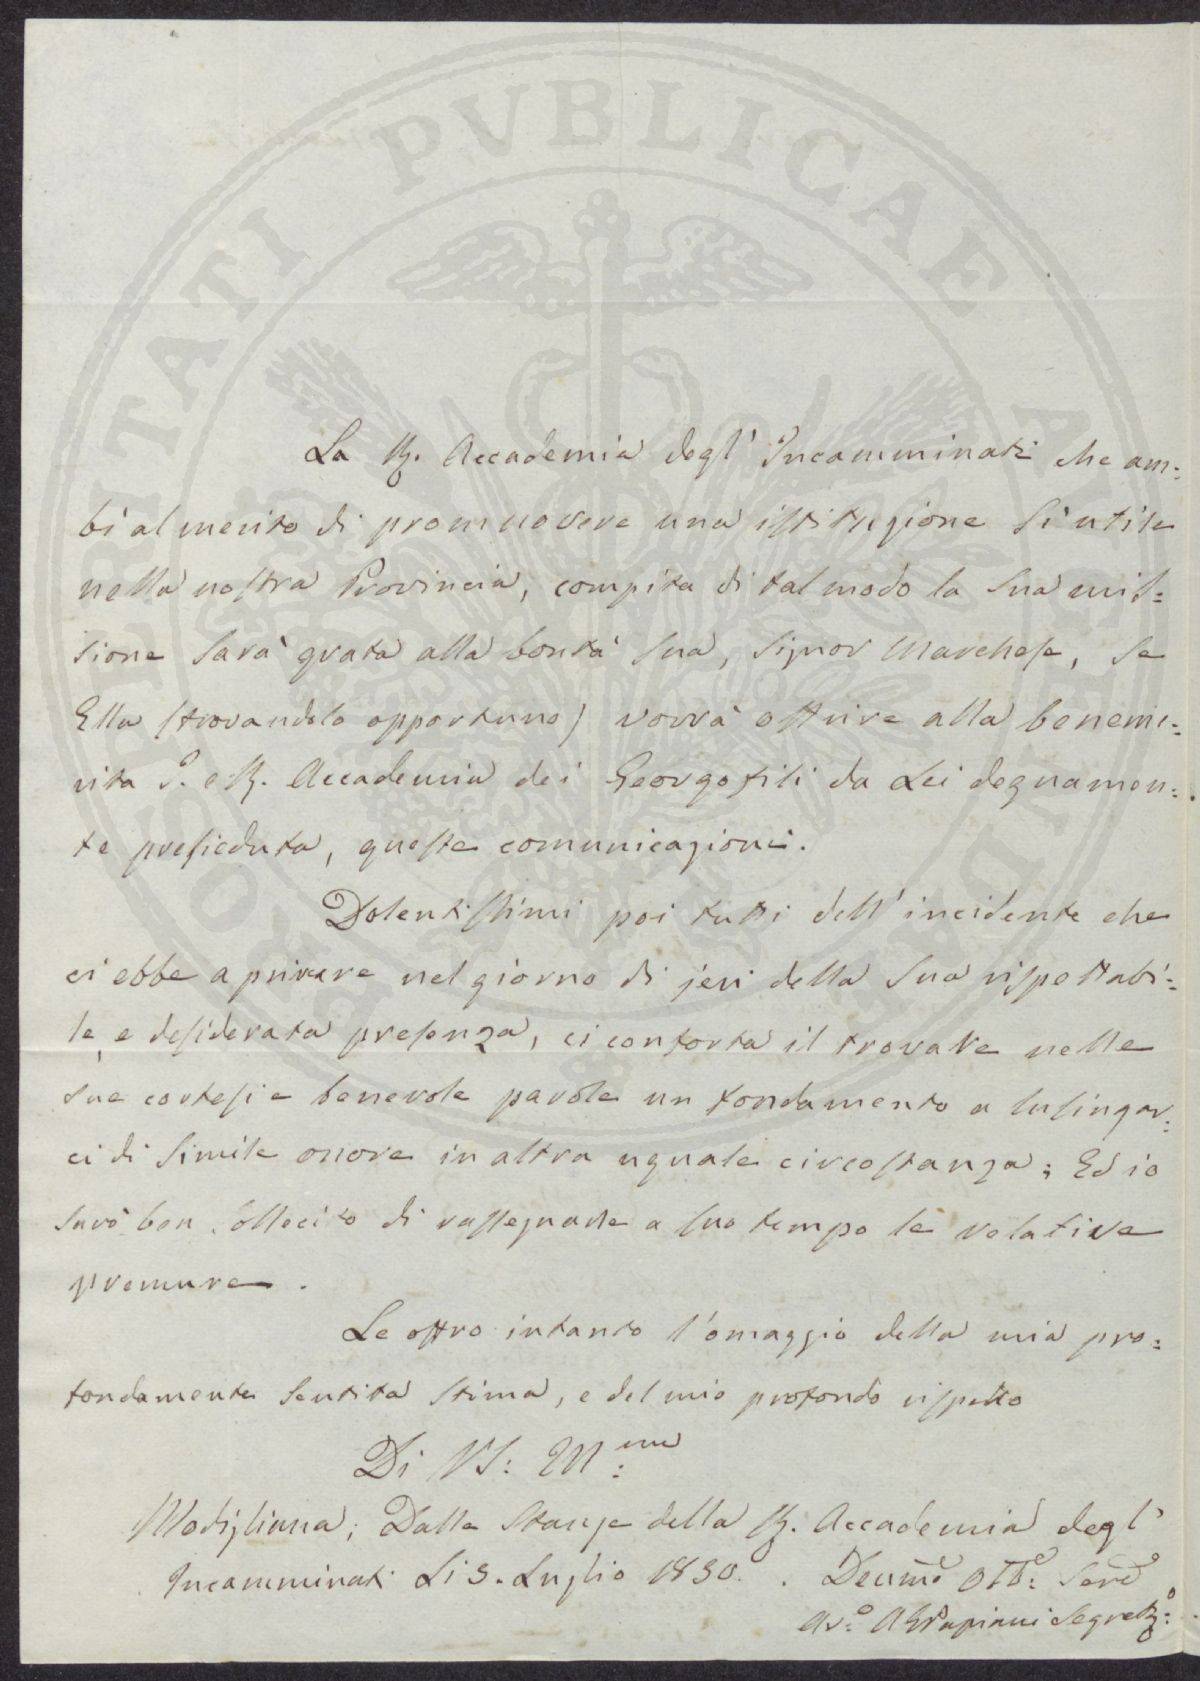 PROSPERITATI PVBLICAE AVGENDAE
La R. Accademia degl' Incamminati che am=
bì al merito di promuovere una istituzione sì utile
nella nostra Provincia, compita di tal modo la sua mis=
sione sarà grata alla bontà sua, Signor Marchese, se
Ella (trovandolo opportuno) vorrà offrire alla beneme=
rita I. e R. Accademia dei Georgofili da Lei degnamen=
te presieduta, queste comunicazioni.
Dolentissimi poi tutti dell' incidente che
ci ebbe a privare nel giorno di jeri della sua rispettabi=
le, e desiderata presenza, ci conforta il trovare nelle
sue cortesi e benevole parole un fondamento a lusingar=
ci di simile onore in altra uguale circostanza; Ed io
sarò ben sollecito di rassegnarle a suo tempo le relative
premure.
Le offro intanto l'omaggio della mia pro=
fondamente sentita stima, e del mio profondo rispetto
Di VS: Ill:ma
Modigliana; Dalle Stanze della R. Accademia degl'
Incamminati Li 3. Luglio 1830. Devmo Obb: Serv
Av:o Segret:o